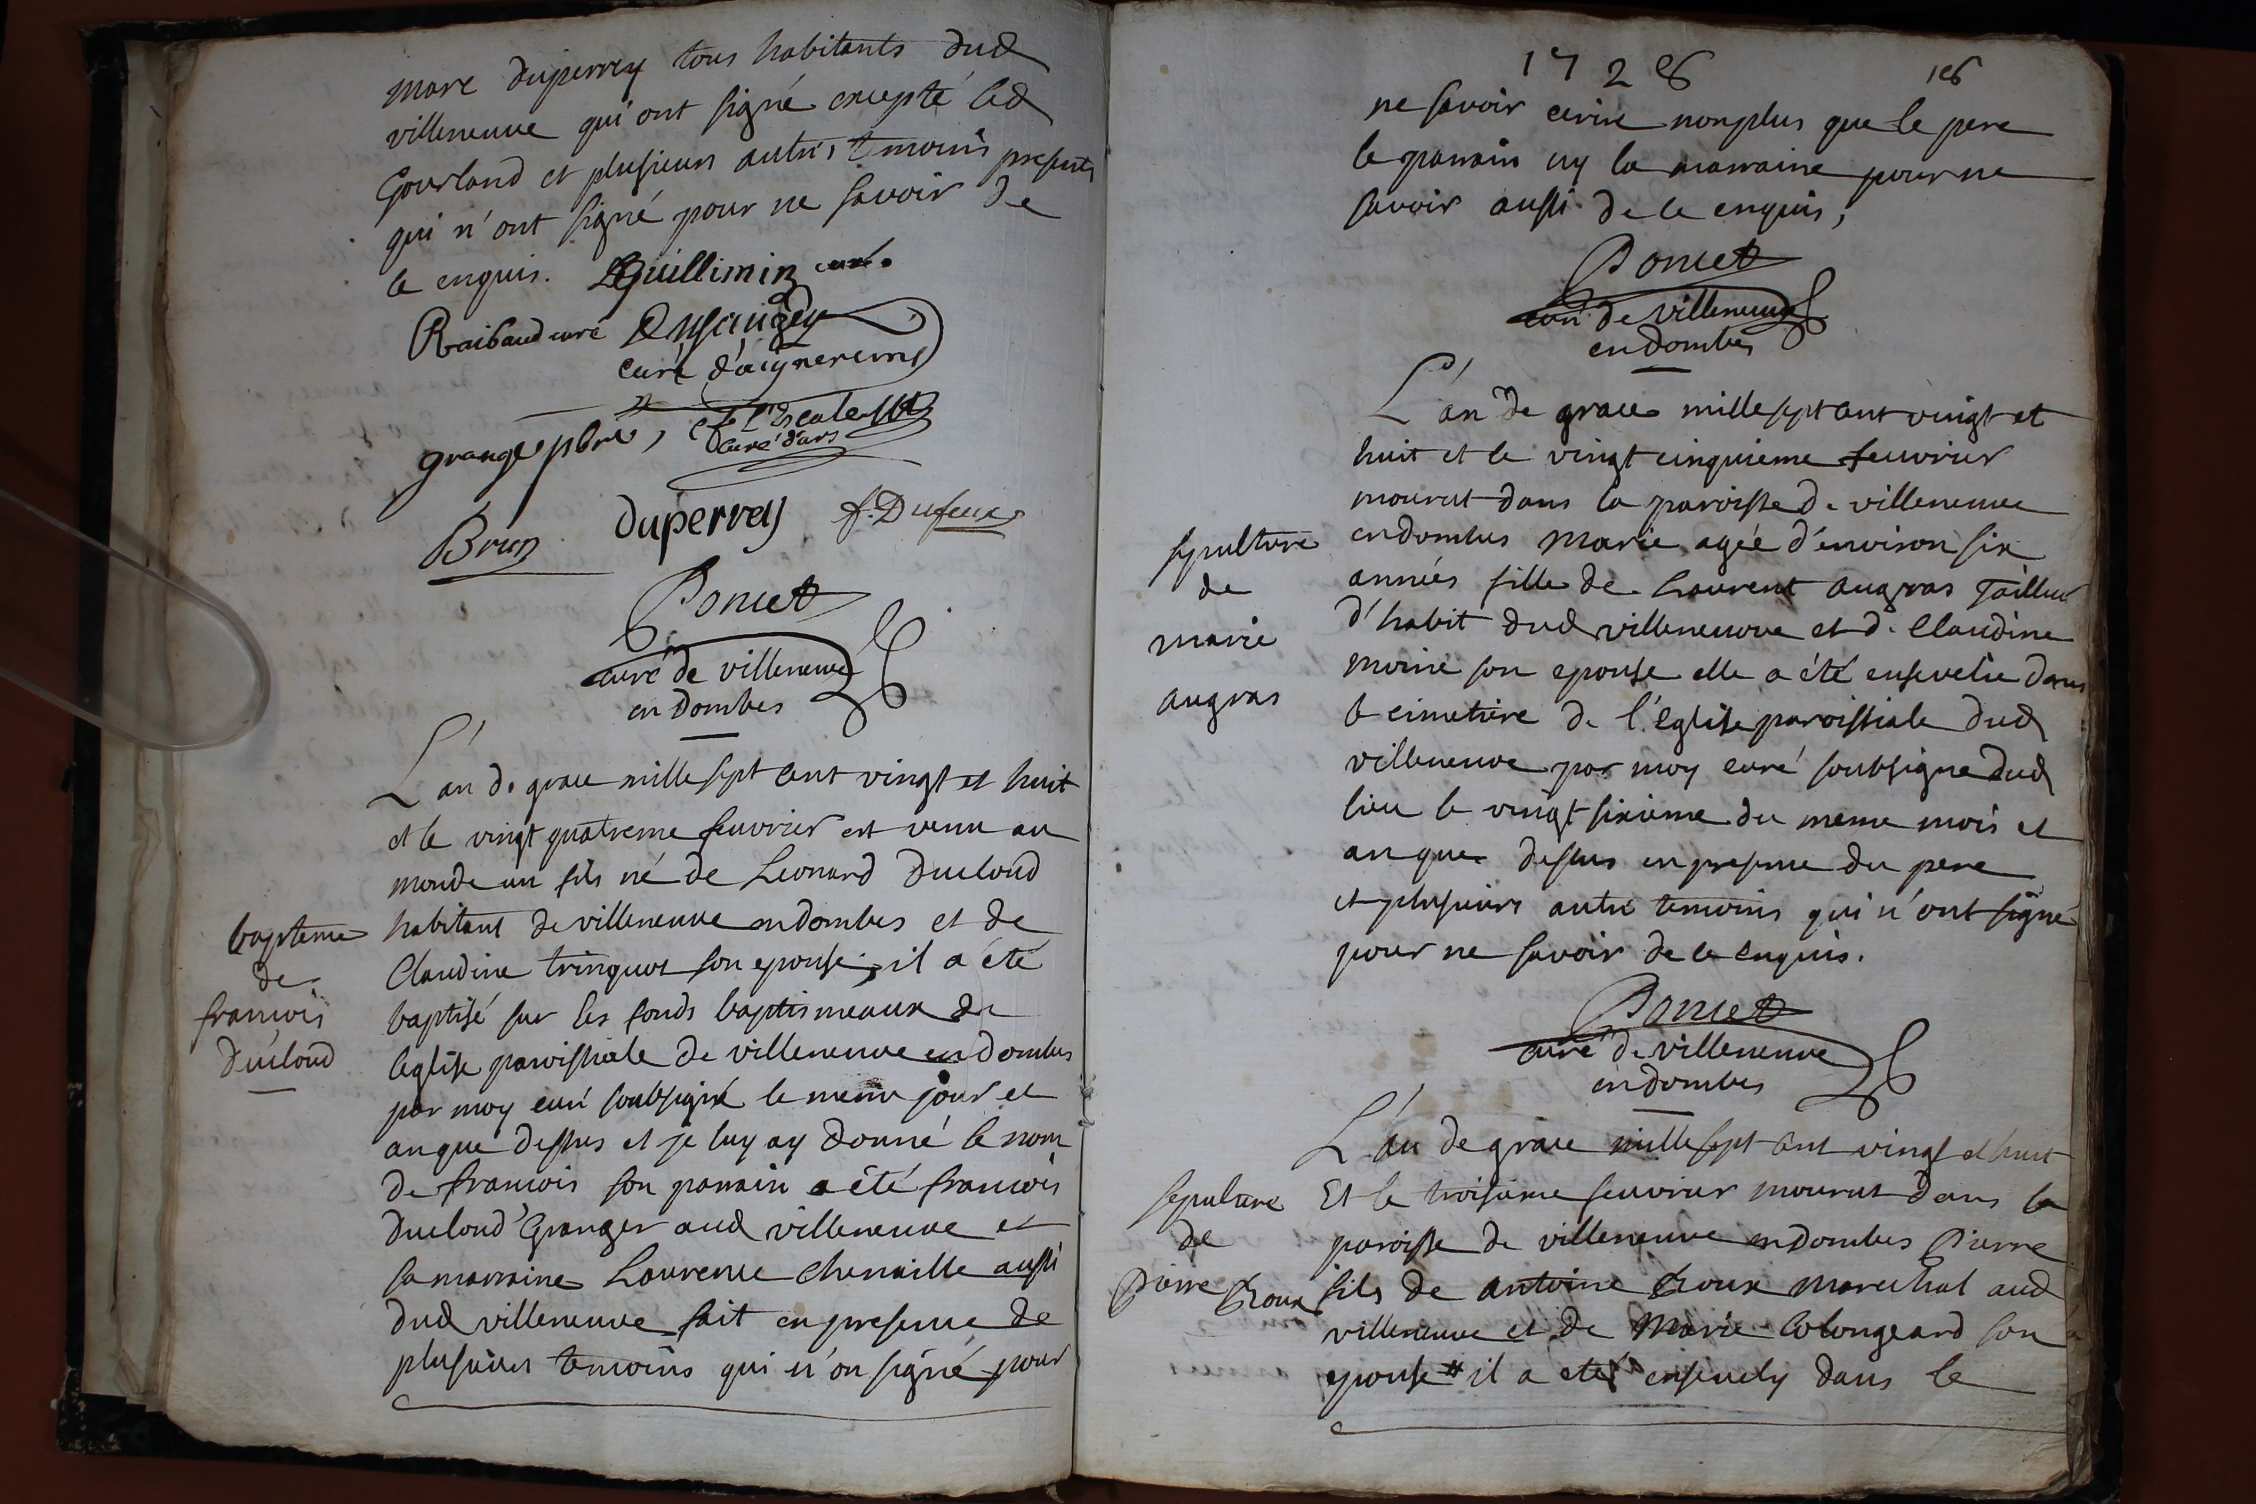 marc duperrey tous habitants dud
villeneuve qui ont signé excepté led
Gourland et plusieurs autres temoins presents
qui n'ont signé pour ne savoir de
ce enquis. Guillimin curé.
Raibaud curé
curé d'aignereins
grange pbre,
curé d'ars
Brun duperrey f. Dufeux
Poncet
curé de villeneuve
en dombes
L'an de grace mille sept cent vingt et huit
et le vingt quatreme feuvrier est venu au
monde un fils né de Leonard Ducloud
bapteme
de
francois
Ducloud
habitant de villeneuve en dombes et de
Claudine trinquot son epouse; il a été
baptisé sur les fonds baptismeaux de
leglise paroissiale de villeneuve en dombes
par moy curé soubsigné le meme jour et
an que dessus et je luy ay donné le nom
de francois son parrain a été francois
Ducloud Granger aud villeneuve et
sa marraine Laurence chenaille aussi
dud villeneuve fait en presence de
plusieurs temoins qui n'on signé pour
1728 18
ne savoir ecrire non plus que le pere
le parrain ny la marraine pour ne
savoir aussi de ce enquis,
Poncet
curé de villeneuve
en dombes
L'an de grace mille sept cent vingt et
huit et le vingt cinquieme feuvrier
mourut dans la paroisse de villeneuve
sepulture
de
marie
augras
en dombes Marie agée d'environ six
années fille de Laurent augras Tailleur
d'habit dud villeneuve et de Claudine
moine son epouse elle a été ensevelie dans
le cimetiere de l'eglise paroissiale dud
villeneuve par moy curé soubsigne dud
lieu le vingt sixieme du meme mois et
an que dessus en presence du pere
et plusieurs autre temoins qui n'ont signé
pour ne savoir de ce enquis.
Poncet
curé de villeneuve
en dombes
L'an de grace mille sept cent vingt et huit
sepulture
de
Pierre Roux
Et le troisieme feuvrier mourut dans la
paroisse de villeneuve en dombes Pierre
fils de antoine Roux marechal aud
villeneuve et de Marie Colongeard son
epouse # il a eté ensevely dans le